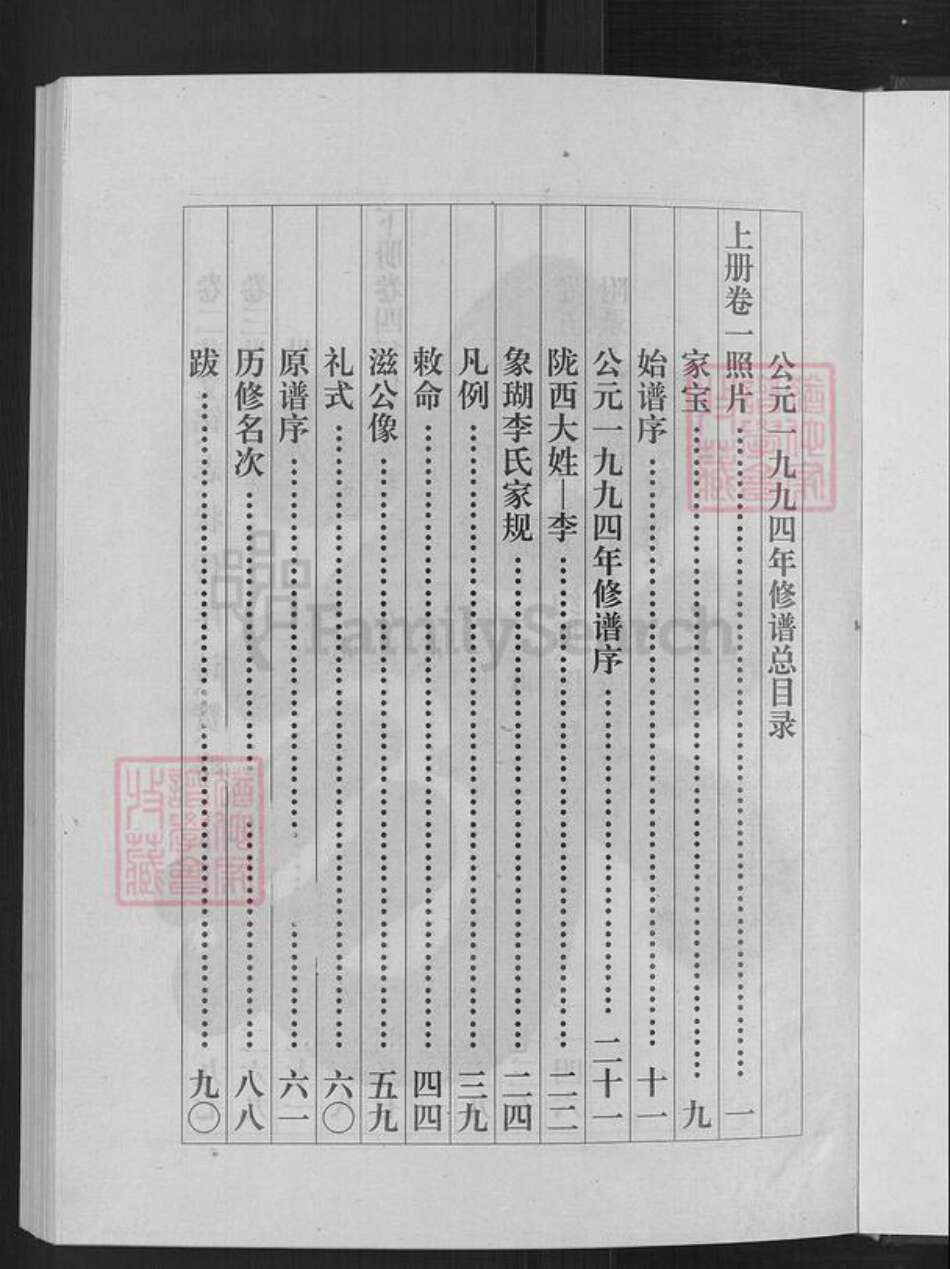 公元一九九四年修谱总目录
上册卷一照片……一
家宝……九
始谱序……十一
公元一九九四年修谱序……二十一
陇西大姓—李……二二
象瑚李氏家规……二四
凡例……三九
敕命……四四
滋公像……五九
礼式……六〇
原谱序……六一
历修名次……八八
跋……九〇
FamilySearch